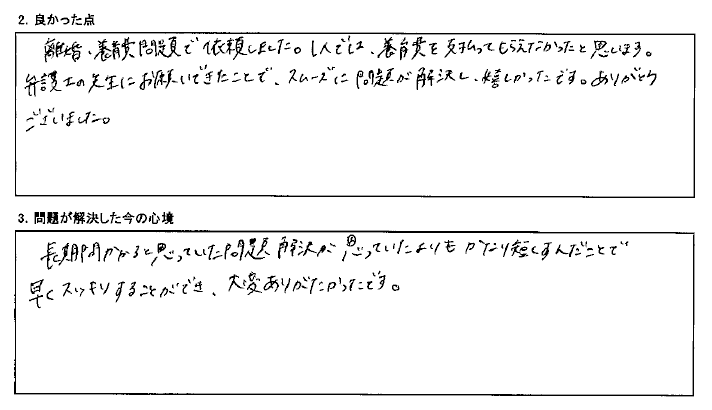 2. 良かった点
離婚、養育費問題で依頼しました。1人では、養育費を支払ってもらえなかったと思います。
弁護士の先生にお願いできたことで、スムーズに問題が解決し、嬉しかったです。ありがとう
ございました。
3. 問題が解決した今の心境
長期間かかると思っていた問題解決が思っていたよりもかなり短くすんだことで
早くスッキリすることができ、大変ありがたかったです。